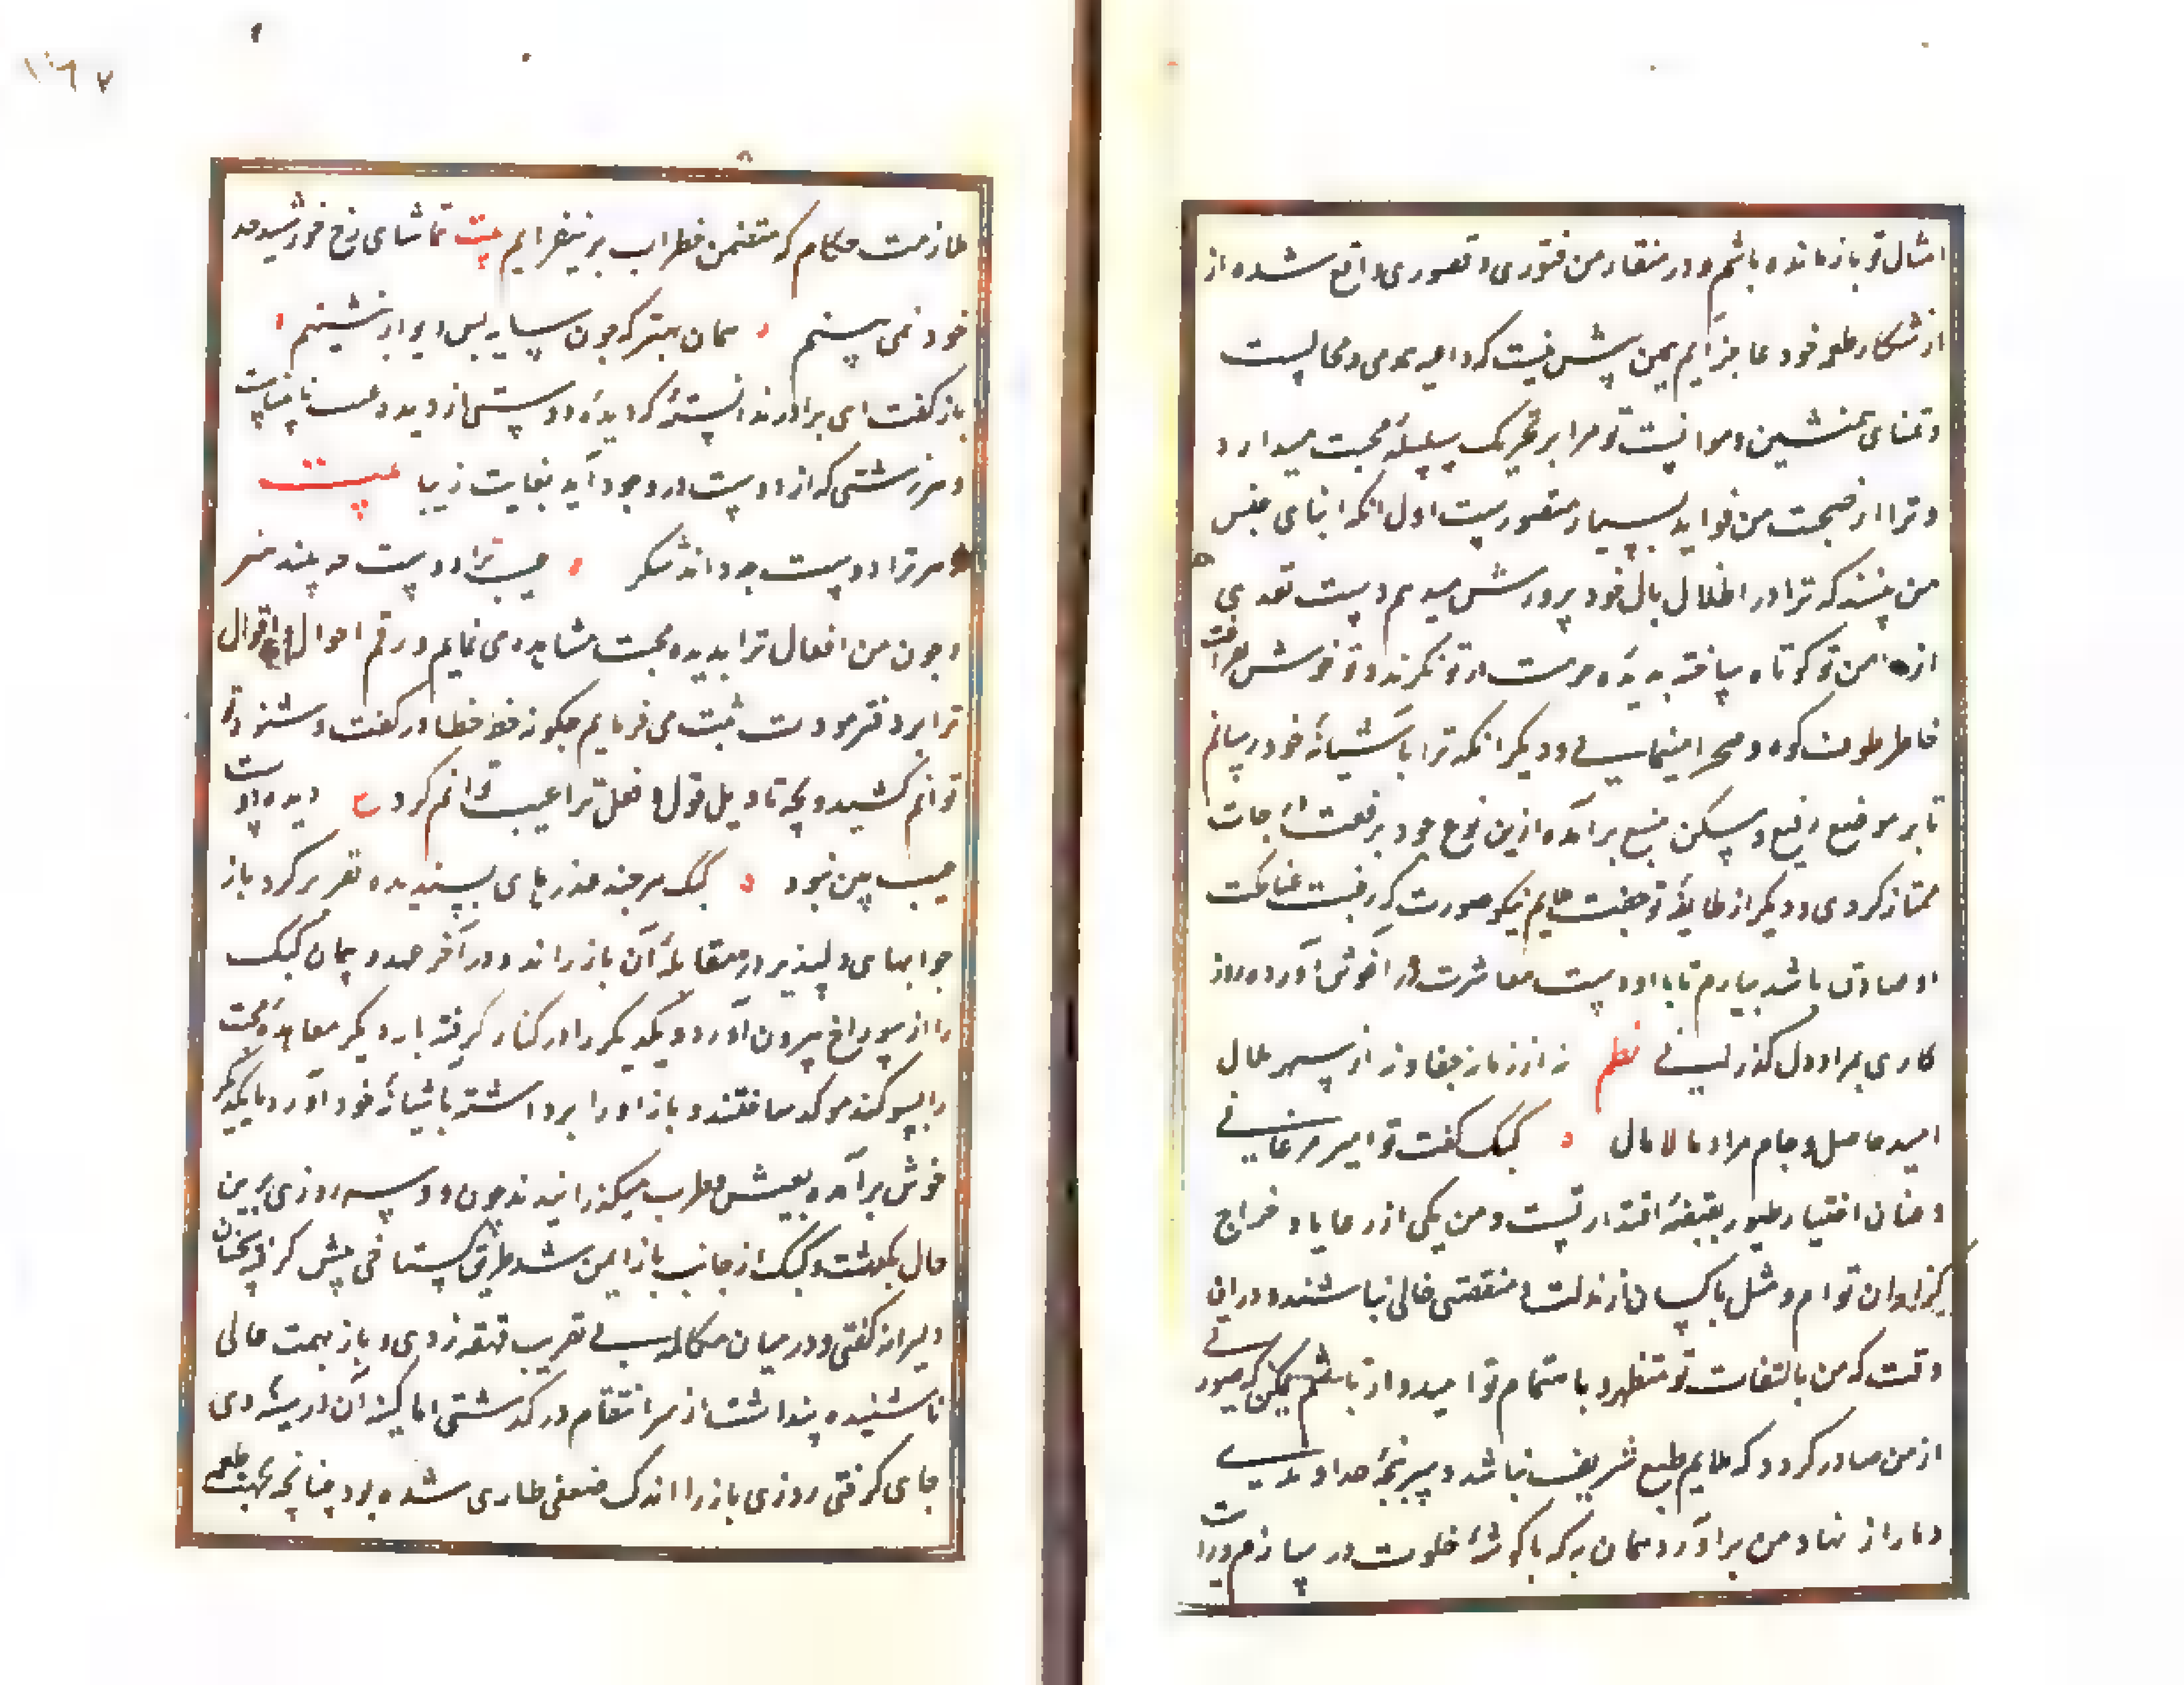 امثال تو بازمانده باشم و در منقار من فتوری و قصوری واقع شده از
از شکار طعمه خود عاجز آیم همین پیش نیست که داعیه همدمی و مجالست
و تمنای همنشین و موانست تو مرا بر تحریک سلسله محبت میدارد
و ترا از صحبت من فواید بسیار متصورست اول انکه ابنای جنس
من بینند که ترا در اظلال بال خود پرورش میدهم دست تعدی
از دامن تو کوتاه ساخته بدیده حرمت در تو نکرند و تو خوش
خاطر طوف کوه و صحرا مینمایی و دیکر انکه ترا باشیانه خود رسانم
تا بر موضع رفیع و مسکن منیع برآمده از بنی نوع خود برفعت درجات
ممتاز کردی و دیکر از طایفه تو جفت ملایم نیکو صورت که رغبت مناکحت
او صادق باشد بیارم تا با او دست معاشرت در آغوش آورده روز
کاری بمراد دل کذرانی نظم نه از زمانه جفا و نه از سپهر ملال
امید حاصل و جام مراد مالامال کبک کفت تو امیر مرغانی
و عنان اختیار طیور بقبضه اقتدار تست و من یکی از رعایا و خراج
کزاران توام و مثل ما کسان از زلت و منقصتی خالی نباشند و دران
وقت که من بالتفات تو مستظهر و باهتمام تو امیدوار باشم یمکن که صورتی
از من صادر کردد که ملایم طبع شریف نباشد و سرپنجه خداوندی
دمار از نهاد من برآرد همان به که با کوشه خلوت در سازم و رایت
ملازمت حکام که متضمن خطراب برنیفرازیم بیت تماشای رخ خورشید حد
خود نمی بینم همان بهتر که چون سایه پس دیوار بنشینم
باز کفت ای برادر ندانسته که دیده دوستی از دیدن عیب نابیناست
و هر زشتی که از دوست در وجود آید بغایت زیبا بیت
زهر ترا دوست چه داند شکر عیب ترا دوست چه بیند هنر
و چون من افعال ترا بدیده محبت مشاهده می نمایم و رقم احوال و اقوال
ترا بر دفتر مودت ثبت می فرمایم چکونه خط خطا در کفت و شنود تو
توانم کشید و بچه تاویل قول و فعل ترا عیب توانم کرد ع دیده دوست
عیب بین نبود کبک هر چند عذرهای پسندیده تقریر کرد باز
جوابهای دلپذیر در مقابله آن باز راند و در آخر عهد و پیمان کبک
را از سوراخ بیرون آورد و یکدیکر را در کنار کرفته بار دیکر معاهده محبت
را بسوکند موکد ساختند و باز او را برداشته باشیانه خود آورد و با یکدیکر
خوش برآمده بعیش و طرب میکذرانیدند چون دو سه روزی برین
حال بکذشت و کبک از جانب باز ایمن شد طریق کستاخی پیش کرفته سخنان
دلیرانه کفتی و در میان مکالمه بی تقریب قهقهه زدی و باز بهمت عالی
ناشنیده پنداشته از سر انتقام در کذشتی اما کینه آن در سینه وی
جای کرفتی روزی باز را اندک ضعفی طاری شده بود چنانچه بجهت طعمه